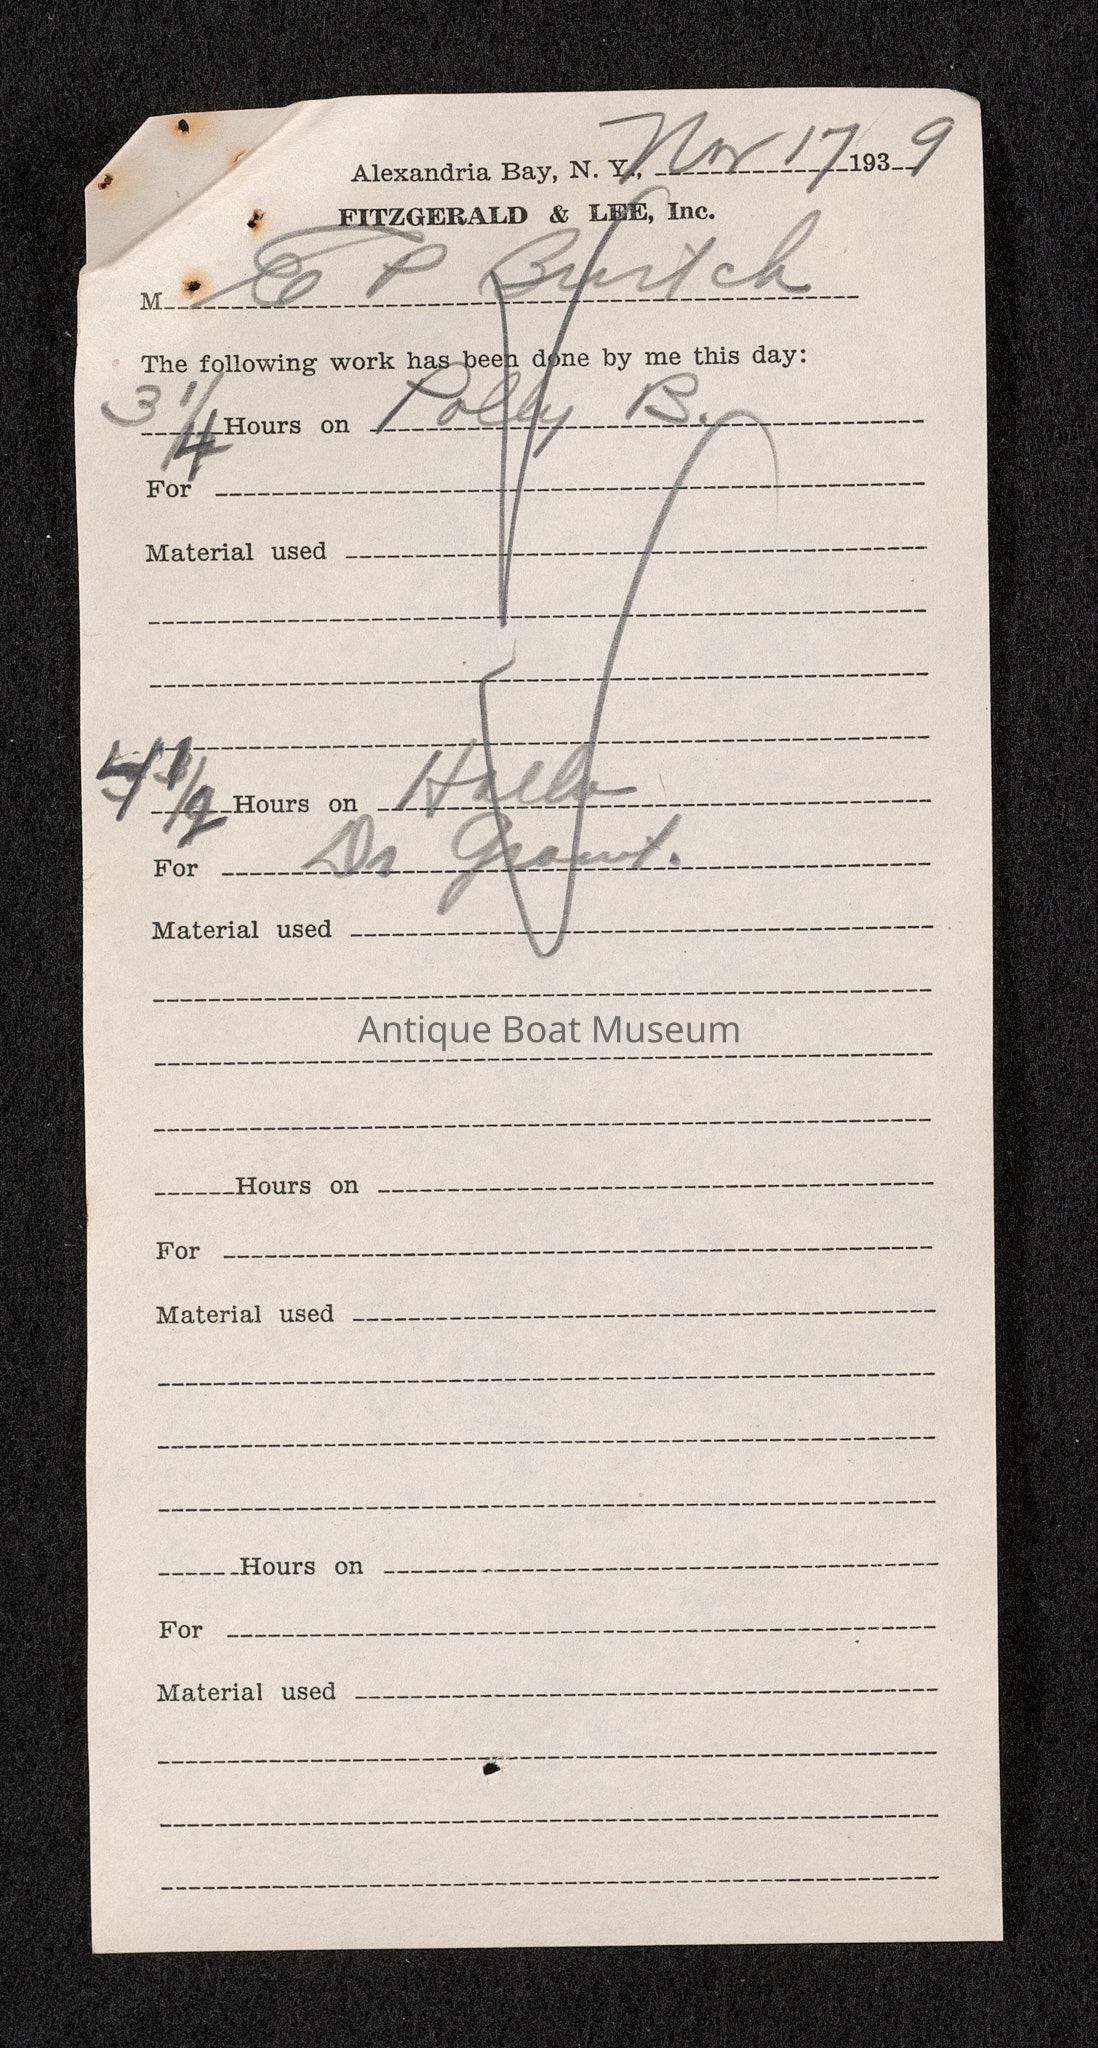 Alexandria Bay, N. Y., Nov 17 1939
FITZGERALD & LEE, Inc.
M E P Burtch
The following work has been done by me this day:
3 1/4 Hours on Polly B.
For
Material used
1/2 Hours on
For Dr Grant.
Material used
Antique Boat Museum
Hours on
For
Material used
Hours on
For
Material used